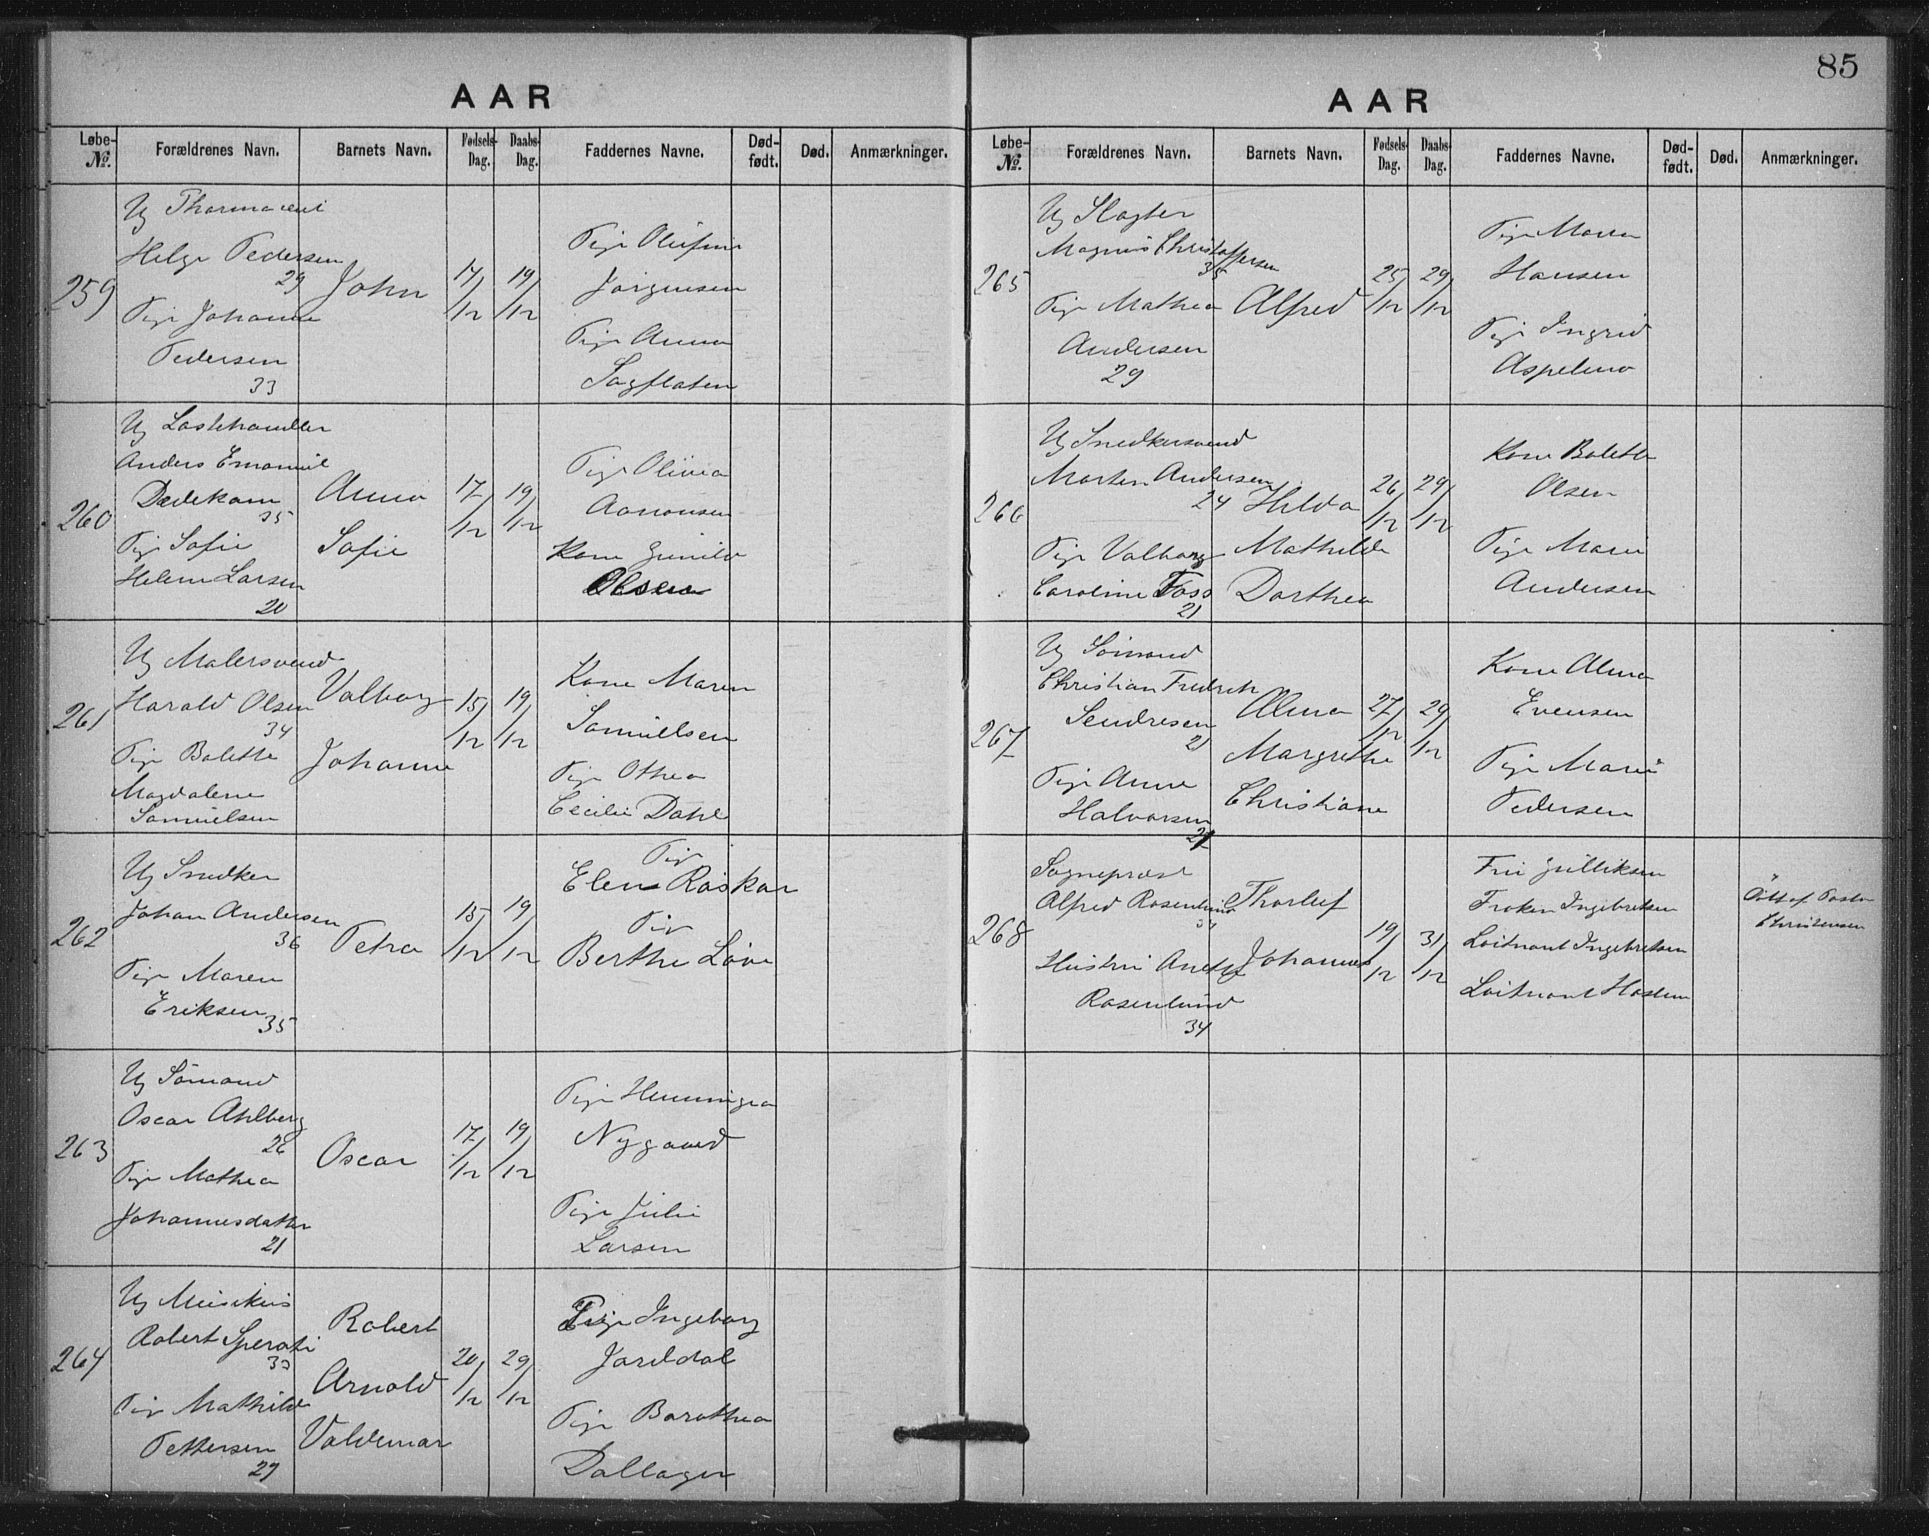 85
AAR
Løbe-No. Forældrenes Navn. Barnets Navn. Fødsels-Dag. Daabs-Dag. Faddernes Navne. Død-født. Død. Anmærkninger.
259
Ug Pharmaceut
Helge Pedersen
29
Pige Johanne
Pedersen
33
John
17/12
19/12
Pige Olufine
Jørgensen
Pige Anna
Sagflaten
260
Ug Lastehandler
Anders Emanuel
Dedekam
35
Pige Sofie
Helene Larsen
20
Anna
Sofie
17/12
19/12
Pige Olivia
Aanonsen
Kone Gunild
Olsen
261
Ug Malersvend
Harald Olsen
34
Pige Bolette
Magdalene
Samuelsen
Valborg
Johanne
15/12
19/12
Kone Maren
Samuelsen
Pige Othea
Cecilie Dahl
262
Ug Snedker
Johan Andersen
36
Pige Maren
Eriksen
35
Petra
15/12
19/12
Pige
Elen Roskar
Pige
Berthe Løve
263
Ug Sømand
Oscar Ahlberg
26
Pige Mathea
Johannesdatter
21
Oscar
17/12
19/12
Pige Henningea
Nygaard
Pige Julie
Larsen
264
Ug Musikus
Robert Sperati
33
Pige Mathilde
Pettersen
29
Robert
Arnold
Valdemar
20/12
29/12
Pige Ingeborg
Joreldal
Pige Barothea
Dallager
AAR
Løbe-No. Forældrenes Navn. Barnets Navn. Fødsels-Dag. Daabs-Dag. Faddernes Navne. Død-født. Død. Anmærkninger.
265
Ug Slagter
Magnus Christoffersen
35
Pige Mathea
Andersen
29
Alfred
25/12
29/12
Pige Maren
Hansen
Pige Ingrid
Aspelund
266
Ug Snedkersvend
Morten Andersen
24
Pige Valborg
Caroline Foss
21
Hilda
Mathilde
Dorthea
26/12
29/12
Kone Bolette
Olsen
Pige Marie
Andersen
267
Ug Sømand
Christian Fredrik
Sendresen
21
Pige Anna
Halvorsen
21
Alma
Margrethe
Christiane
27/12
29/12
Kone Alma
Evensen
Pige Marie
Pedersen
268
Sogneprest
Alfred Rosenlund
34
Hustru Anette
Rosenlund
34
Thorleif
Johannes
19/12
31/12
Fru Gulliksen
Frøken Ingebretsen
Løitnant Ingebretsen
Løitnant Haslum
Døbt af Pastor
Christensen